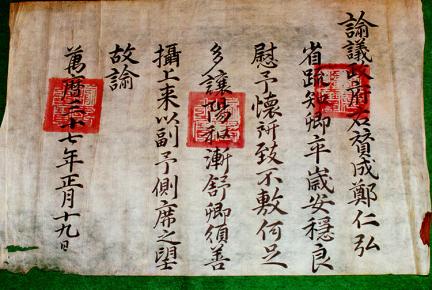 諭議政府右贊成鄭仁弘
省疏知卿卒歲安穩良
慰予懷所致不敷何足
多讓陽和漸舒卿須善
攝上来以副予側席之望
故諭
萬曆三十七年正月十九日